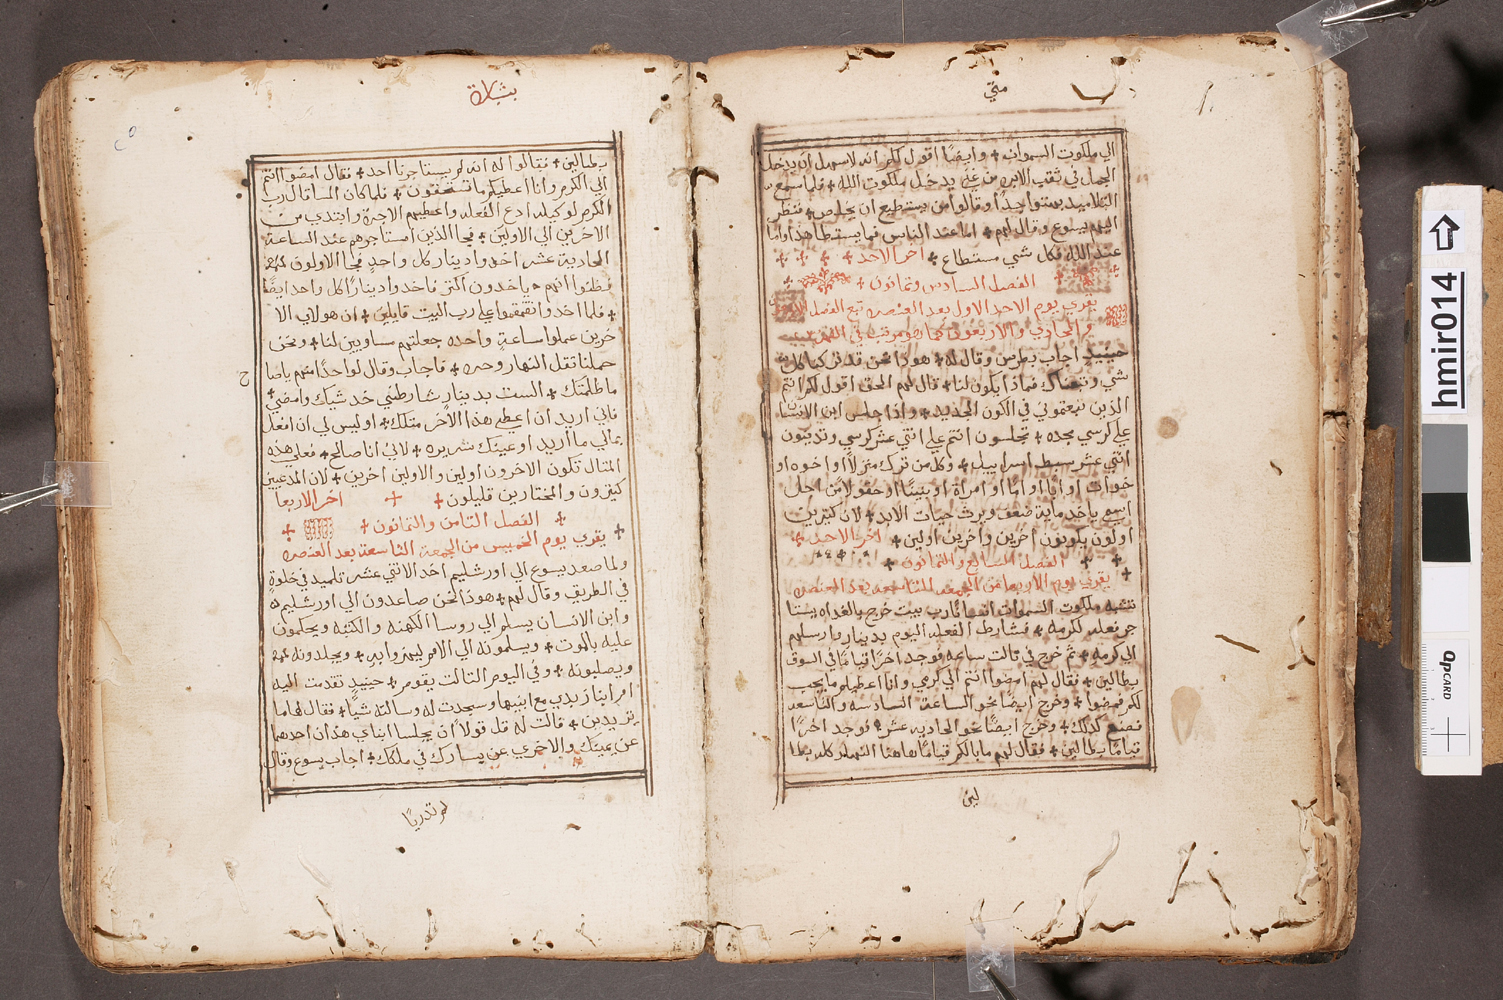 متي
الي ملكوت السموات وايضًا اقول لكم انه لاسهل ان يدخل
الجمل في ثقب الابره من غني يدخل ملكوت الله فلما سمع
التلاميد بهتوا جدًا وقالوا من يستطيع ان يخلص فنظر
اليهم يسوع وقال لهم اما عند الناس فما يستطا هدا واما
عند الله فكل شي مستطاع اخر الاحد
الفصل السادس وتمانون
يقري يوم الاحد الاول بعد العنصره تبع الفصل
والحادي والاربعون كما هو مرتب في الفهر
حينيدٍ اجاب بطرس وقال له هودا نحن قد تركنا كل
شي وتبعناك فمادا يكون لنا قال لهم الحق اقول لكم انتم
الذين تبعتموني في الكون الجديد وادا جلس ابن الانسان
علي كرسي مجده تجلسون انتم علي اتني عشر كرسي وتدينون
اتني عشر سبط اسراييل وكل من ترك منزلًا او اخوه او
خوات او ابا او امًا او امراة او بنينًا او حقولًا من اجل
اسمي ياخد ماية ضعف ويرت حيات الابد لان كتيرين
اولون يكونون اخرين واخرين اولين اخر الاحد
الفصل السابع والتمانون
يقري يوم الاربعا من الجمعه التاسعه بعد العنصره
تشبه ملكوت السموات انسانًا رب بيت خرج بالغداه يستا
جر فعله لكرمه فشارط الفعله اليوم بدينار وارسلهم
الي كرمه تم خرج في تالت ساعه فوجد اخرًا قيامًا في السوق
بطالين فقال لهم امضوا انتم الي كرمي وانا اعطيكم ما يجب
لكم فمضوا وخرج ايضًا نحو الساعة السادسه والتاسعه
فصنع كدلك وخرج ايضًا نحو الحاديه عشر فوجد اخرًا
قيامًا بطالين فقال لهم ما بالكم قيامًا هاهنا النهار كله بطا
لين
بشارة
بطالين فقالوا له انه لم يستاجرنا احد فقال امضوا انتم
الي الكرم وانا اعطيكم ما تستحقون فلما كان المسا قال رب
الكرم لوكيله ادع الفعله واعطيهم الاجرة وابتدي من
الاخرين الي الاولين فجا الذين استاجرهم عند الساعة
الحادية عشر اخدوا دينار كل واحدٍ فجا الاولون
فظنوا انهم ياخدون اكتر فاخدوا دينارًا كل واحد ايضًا
فلما اخدوا تقمقموا علي رب البيت قايلين ان هولاي الا
خرين عملوا ساعة واحده جعلتهم مساويين لنا ونحن
حملنا تقل النهار وحره فاجاب وقال لواحدًا منهم ياصا
ح
ما ظلمتك الست بدينارٍ شارطني خد شيك وامضي
فاني اريد ان اعطي هدا الاخر متلك اوليس لي ان افعل
بمالي ما اريد او عينك شريره لاني انا صالح فعلي هذه
المتال تكون الاخرون اولين والاولين اخرين لان المدعيين
كتيرون والمختارين قليلون اخر الاربعا
الفصل التامن والتمانون
يقري يوم الخميس من الجمعة التاسعة بعد العنصره
ولما صعد يسوع الي اورشليم اخد الاتني عشر تلميد في خلوةٍ
في الطريق وقال لهم هودا نحن صاعدون الي اورشليم
وابن الانسان يسلم الي روسا الكهنه والكتبه ويحكمون
عليه بالموت ويسلمونه الي الامم ليهزوا به ويجلدونه
ويصلبونه وفي اليوم التالت يقوم حينيدٍ تقدمت اليه
ام ابنا زبدي مع ابنيها وسجدت له وسالته شيًا فقال لها ما
تريدين قالت له قل قولًا أن يجلسا ابناي هدان احدهما
عن يمينك والاخري عن يسارك في ملكك اجاب يسوع وقال
لم تدريًا